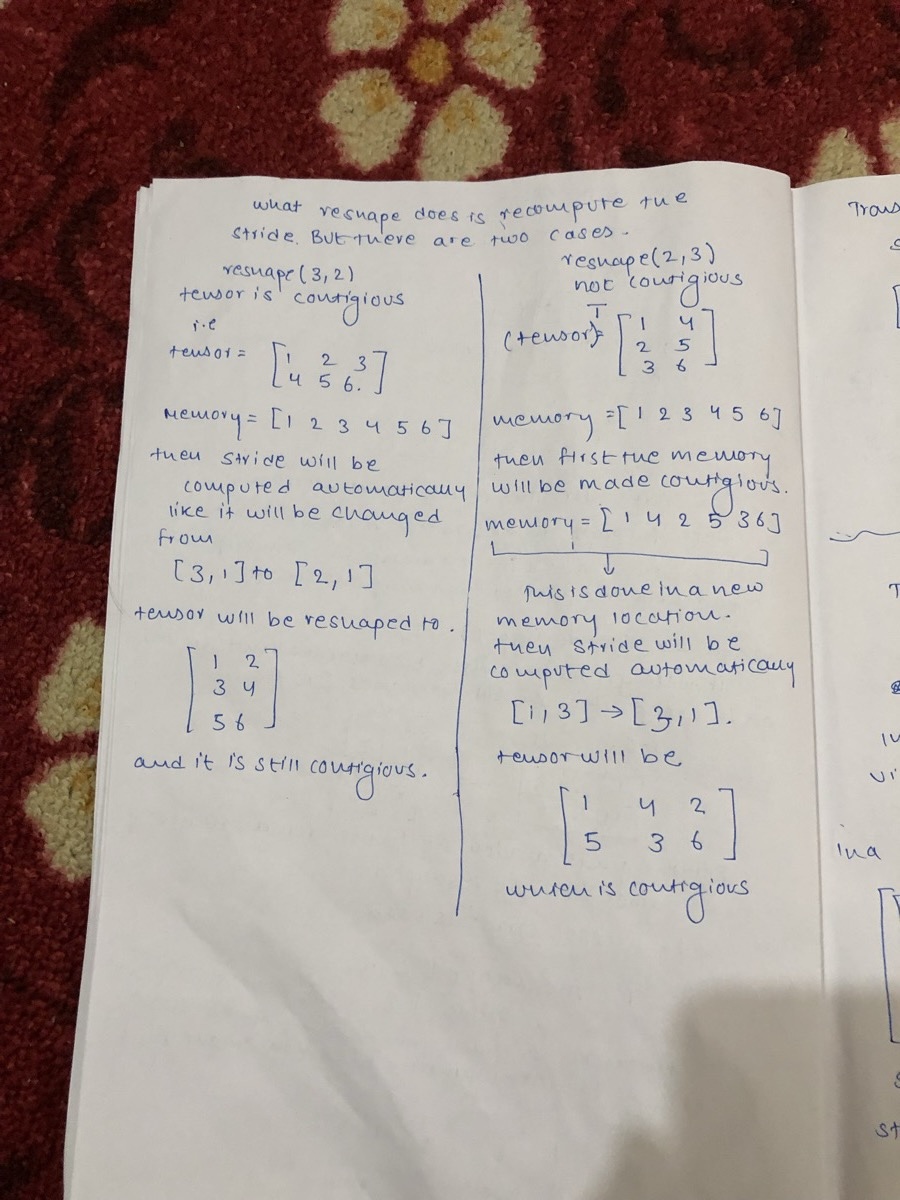 what reshape does is recompute the
stride. But there are two cases.
reshape(3,2)
tensor is contigious
i.e
tensor = [1 2 3
4 5 6.]
Memory = [1 2 3 4 5 6]
then stride will be
computed automatically
like it will be changed
from
[3,1] to [2,1]
tensor will be reshaped to.
[1 2
3 4
5 6]
and it is still contigious.
reshape(2,3)
not contigious
(tensor)T = [1 4
2 5
3 6]
memory = [1 2 3 4 5 6]
then first the memory
will be made contigious.
memory = [1 4 2 5 3 6]
This is done in a new
memory location.
then stride will be
computed automatically
[1,3] → [3,1].
tensor will be
[1 4 2
5 3 6]
which is contigious
Trans
in a
st